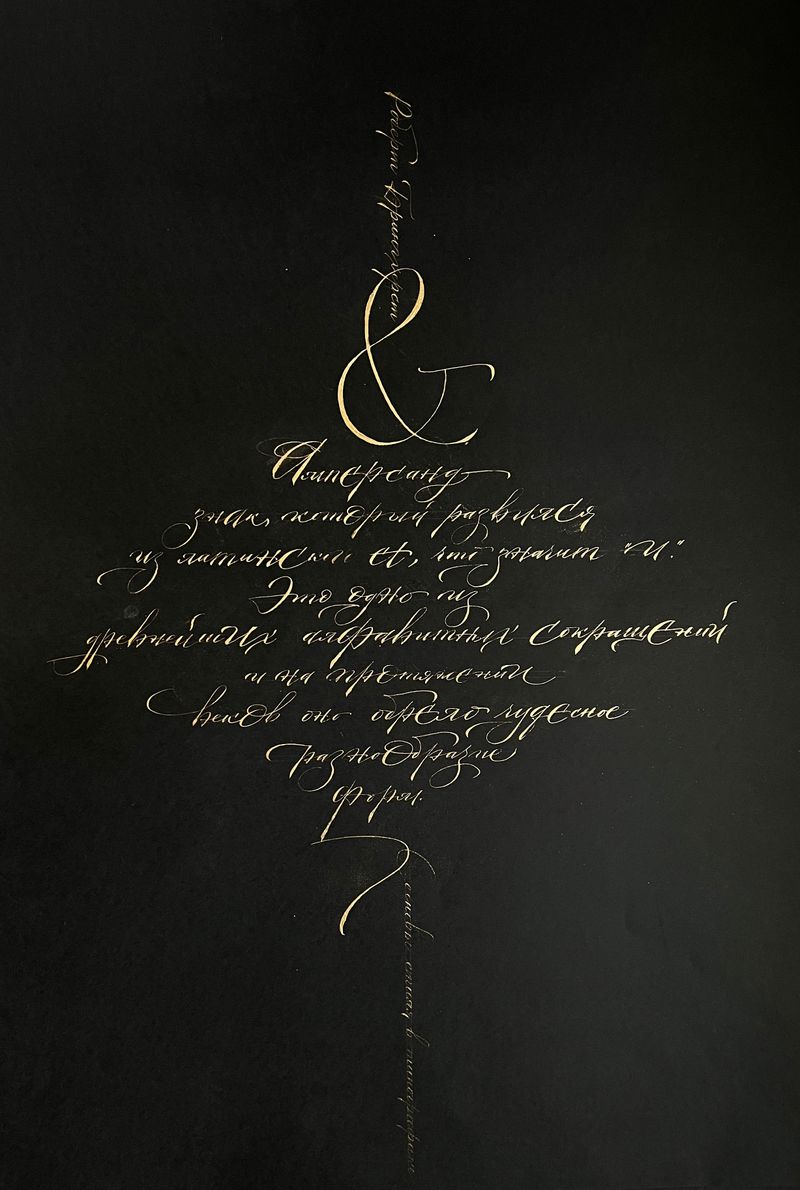 Роберт Брингхерст
&
Амперсанд
знак, который развился
из латинский et, что значит "и".
Это одно из
древнейших алфавитных сокращений
и на протяжении
веков оно обрело чудесное
разнообразие
форм.
основы стиля в типографике